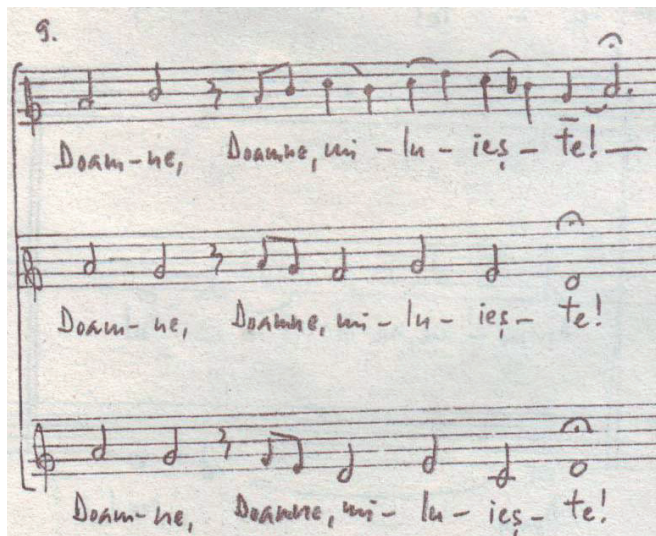 9.
Doam-ne, Doamne, mi - lu - ieș - te! —
Doam-ne, Doamne, mi - lu - ieș - te!
Doam-ne, Doamne, mi - lu - ieș - te!